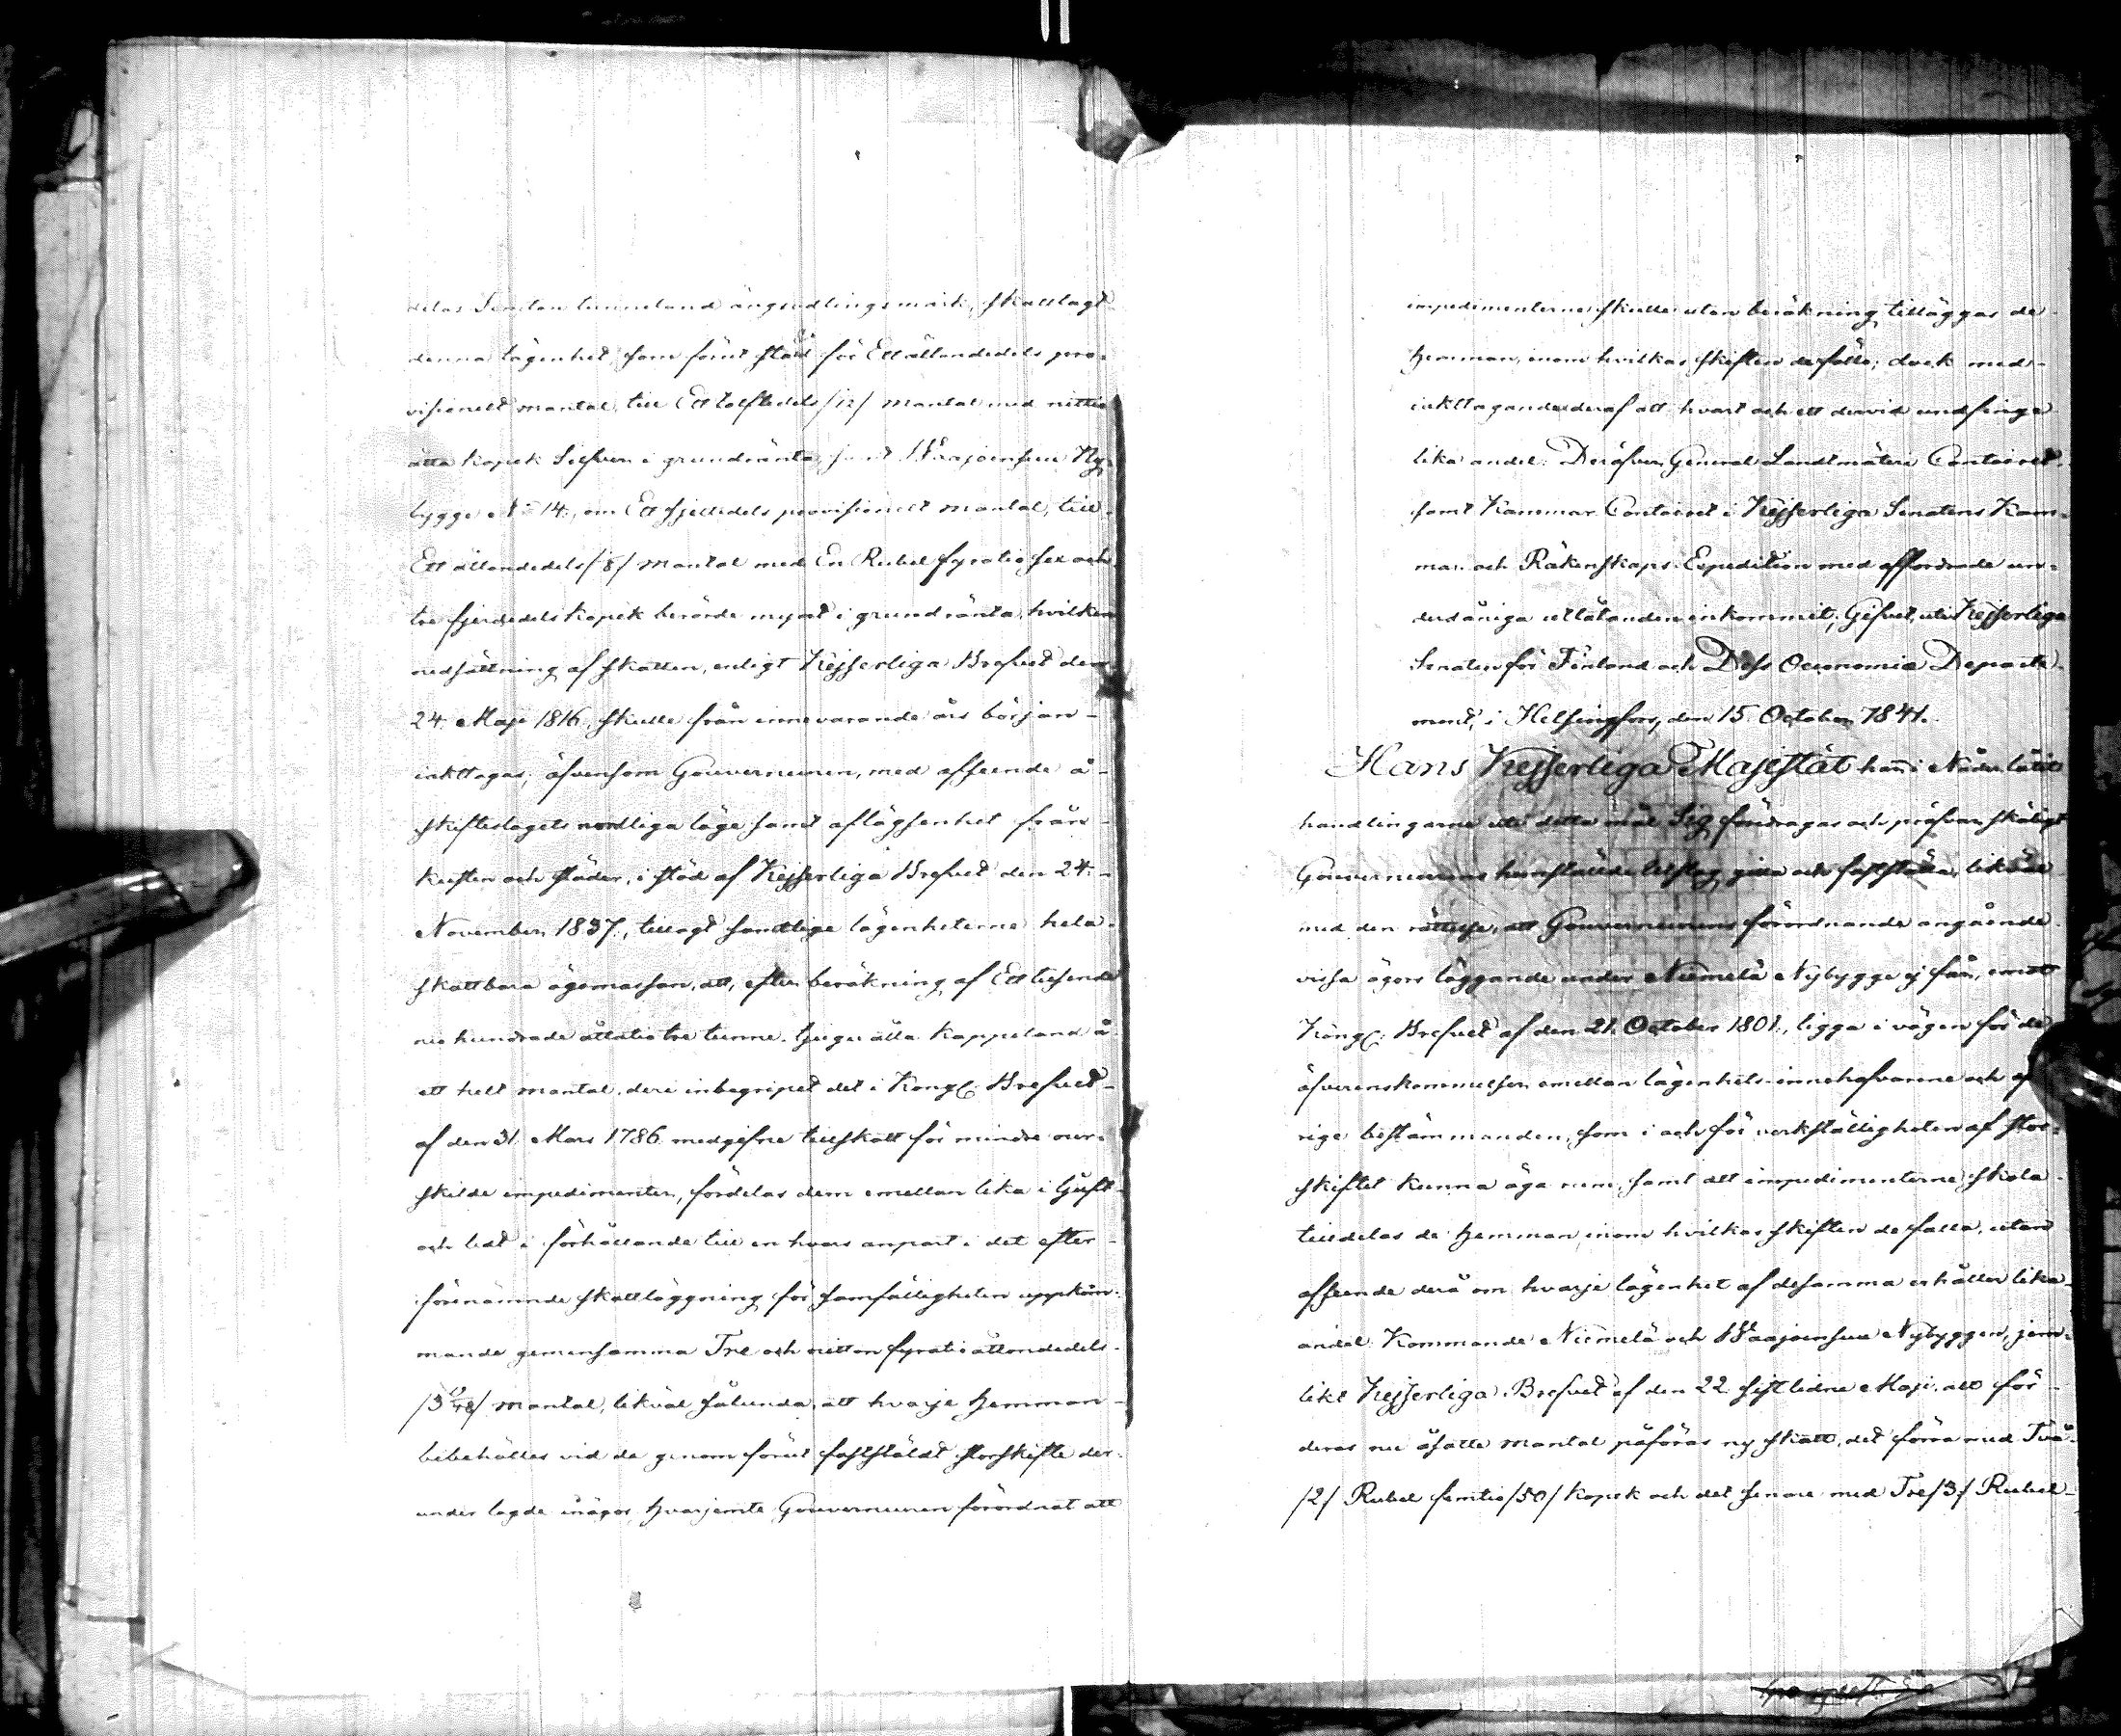 delas Femton tunneland ängsodlingsmark, skattlagt
denna lägenhet, som förut stått för Ett åttondedels pro-
visionelt mantal, till Ett tolftedels /12/ mantal med nittio
åtta kopek Silfver i grundränta, samt Waajoensuu Ny-
bygge No 14, om Ett fjerdedels provisionelt mantal, till
Ett åttondedels /8/ mantal med En Rubel fyratio sex och
tre fjerdedels kopek berörde mynt i grundränta, hvilken
nedsättning af skatten, enligt Kejserliga Brefvet den
24 Maji 1816, skulle från innevarande års början
iakttagas; äfvensom Gouverneuren, med afseende å
skifteslagets nordliga läge samt aflägsenhet från
kusten och städer, i stöd af Kejserliga Brefvet den 24
November 1837, tillagt samtlige lägenheterne hela
skattbara ägomassan, att, efter beräkning af Ett tusende
nio hundrade åttatio tre tunne- tjugu åtta kappeland å
ett helt mantal, deri inbegripet det i Kongl. Brefvet
af den 31 Mars 1786 medgifne tillskott för mindre our-
skilde impedimenter, fördelas dem emellan lika i ljust
och ledt i förhållande till en hvars anpart i det efter
förenämnde skattläggning för samfälligheten uppkom-
mande gemensamma Tre och nitton fyratioåttondedels
/3 19/48/ mantal, likväl sålunda, att hvarje hemman
bibehålles vid de genom förut fastställdt storskifte der-
under lagde inägor, hvarjemte Gouverneuren förordnat att
impedimenterne skulle utan beräkning tilläggas de
hemman, inom hvilkas skiften de fölle; dock med
iakttagande deraf att hvart och ett dervid undfinge
lika andel: Deröfver General Landtmäteri Contoiret
samt Kammar Contoiret i Kejserliga Senatens Kam-
mar och Räkenskaps Expedition med affordrade un-
derdåniga utlåtanden inkommit; Gifvet, uti Kejserliga
Senaten för Finland och Dess Oeconomie Departe-
ment, i Helsingfors, den 15 October 1841.
Hans Kejserliga Majestät har i Nåder låtit
handlingarne uti detta mål Sig föredragas och pröfvar skäligt
Gouverneurens hemställde utslag gilla och fastställa, likväl
med den rättelse, att Gouverneurens förordnande angående
vissa ägors läggande under Niemelä Nybygge ej får, emot
Kongl. Brefvet af den 21 October 1801, ligga i vägen för de
öfverenskommelser emellan lägenhets-innehafvarene och
rige bestämmanden, som i och för verkställigheten af stor-
skiftet kunna äga rum, samt att impedimenterne skola
tilldelas de hemman, inom hvilkas skiften de falla, utan
afseende derå om hvarje lägenhet af desamma erhåller lika
andel: Kommande Niemelä och Waajoensuu Nybyggen, jem-
likt Kejserliga Brefvet af den 22 sistlidne Maji, att för
deras nu åsatte mantal påföras ny skatt, det förra med Två
/2/ Rubel femtio /50/ kopek och det senare med Tre /3/ Rubel